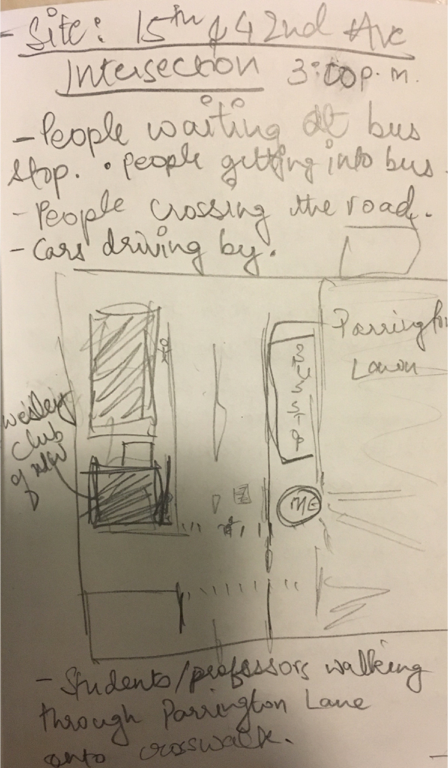 - Site: 15th & 42nd Ave
Intersection 3:00p.m.
- People waiting at bus
stop. • People getting into bus.
- People crossing the road.
- Cars driving by.
Parrington
Lawn
Wesley
Club
of
ME
- Students/professors walking
through Parrington Lane
onto crosswalk.